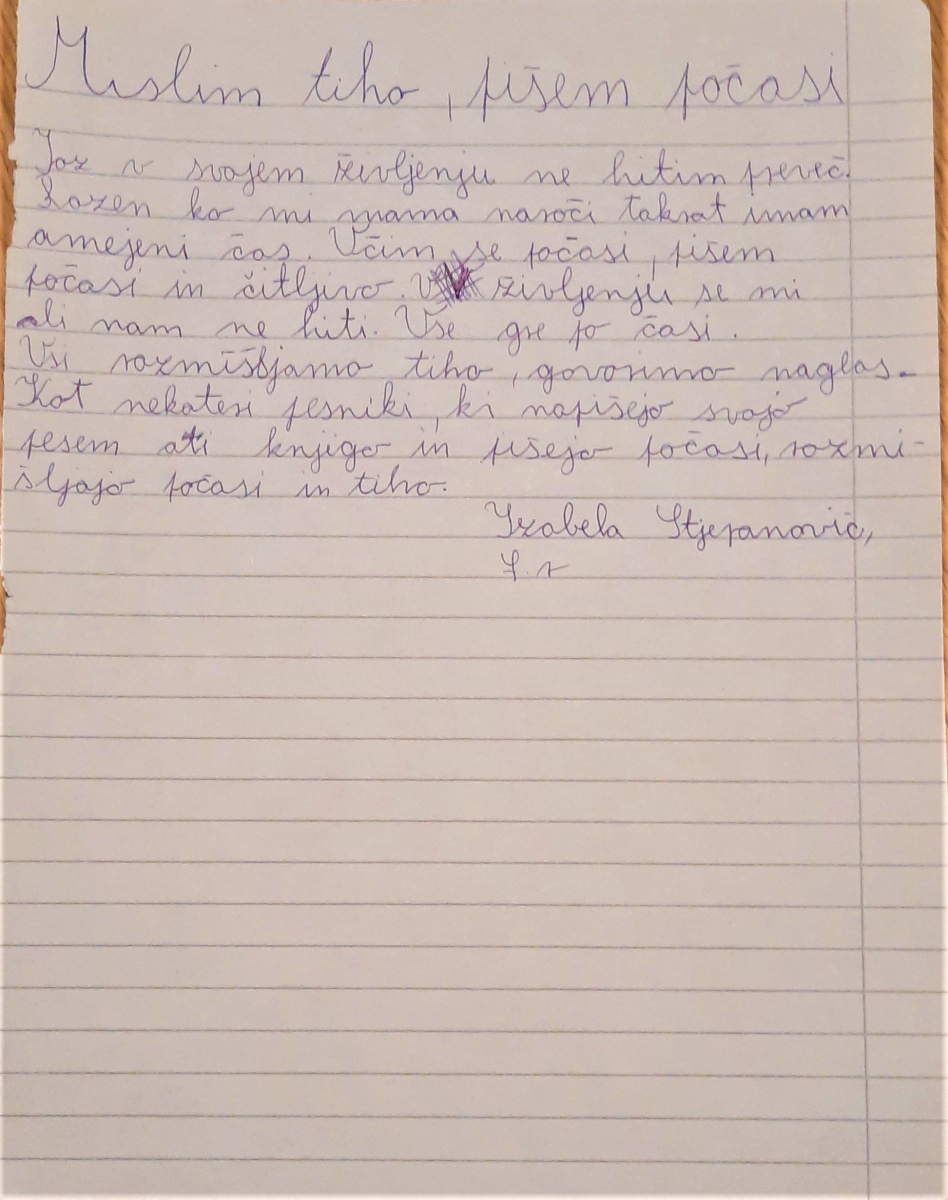 Mislim tiho, pišem počasi
Jaz v svojem življenju ne hitim preveč.
Razen ko mi mama naroči takrat imam
omejeni čas. Učim se počasi, pišem
počasi in čitljivo. V življenju se mi
ali nam ne hiti. Vse gre po časi.
Vsi razmišljamo tiho, govorimo naglas.
Kot nekateri pesniki, ki napišejo svojo
pesem ali knjigo in pišejo počasi, razmi-
šljajo počasi in tiho.
Izabela Stjepanović,